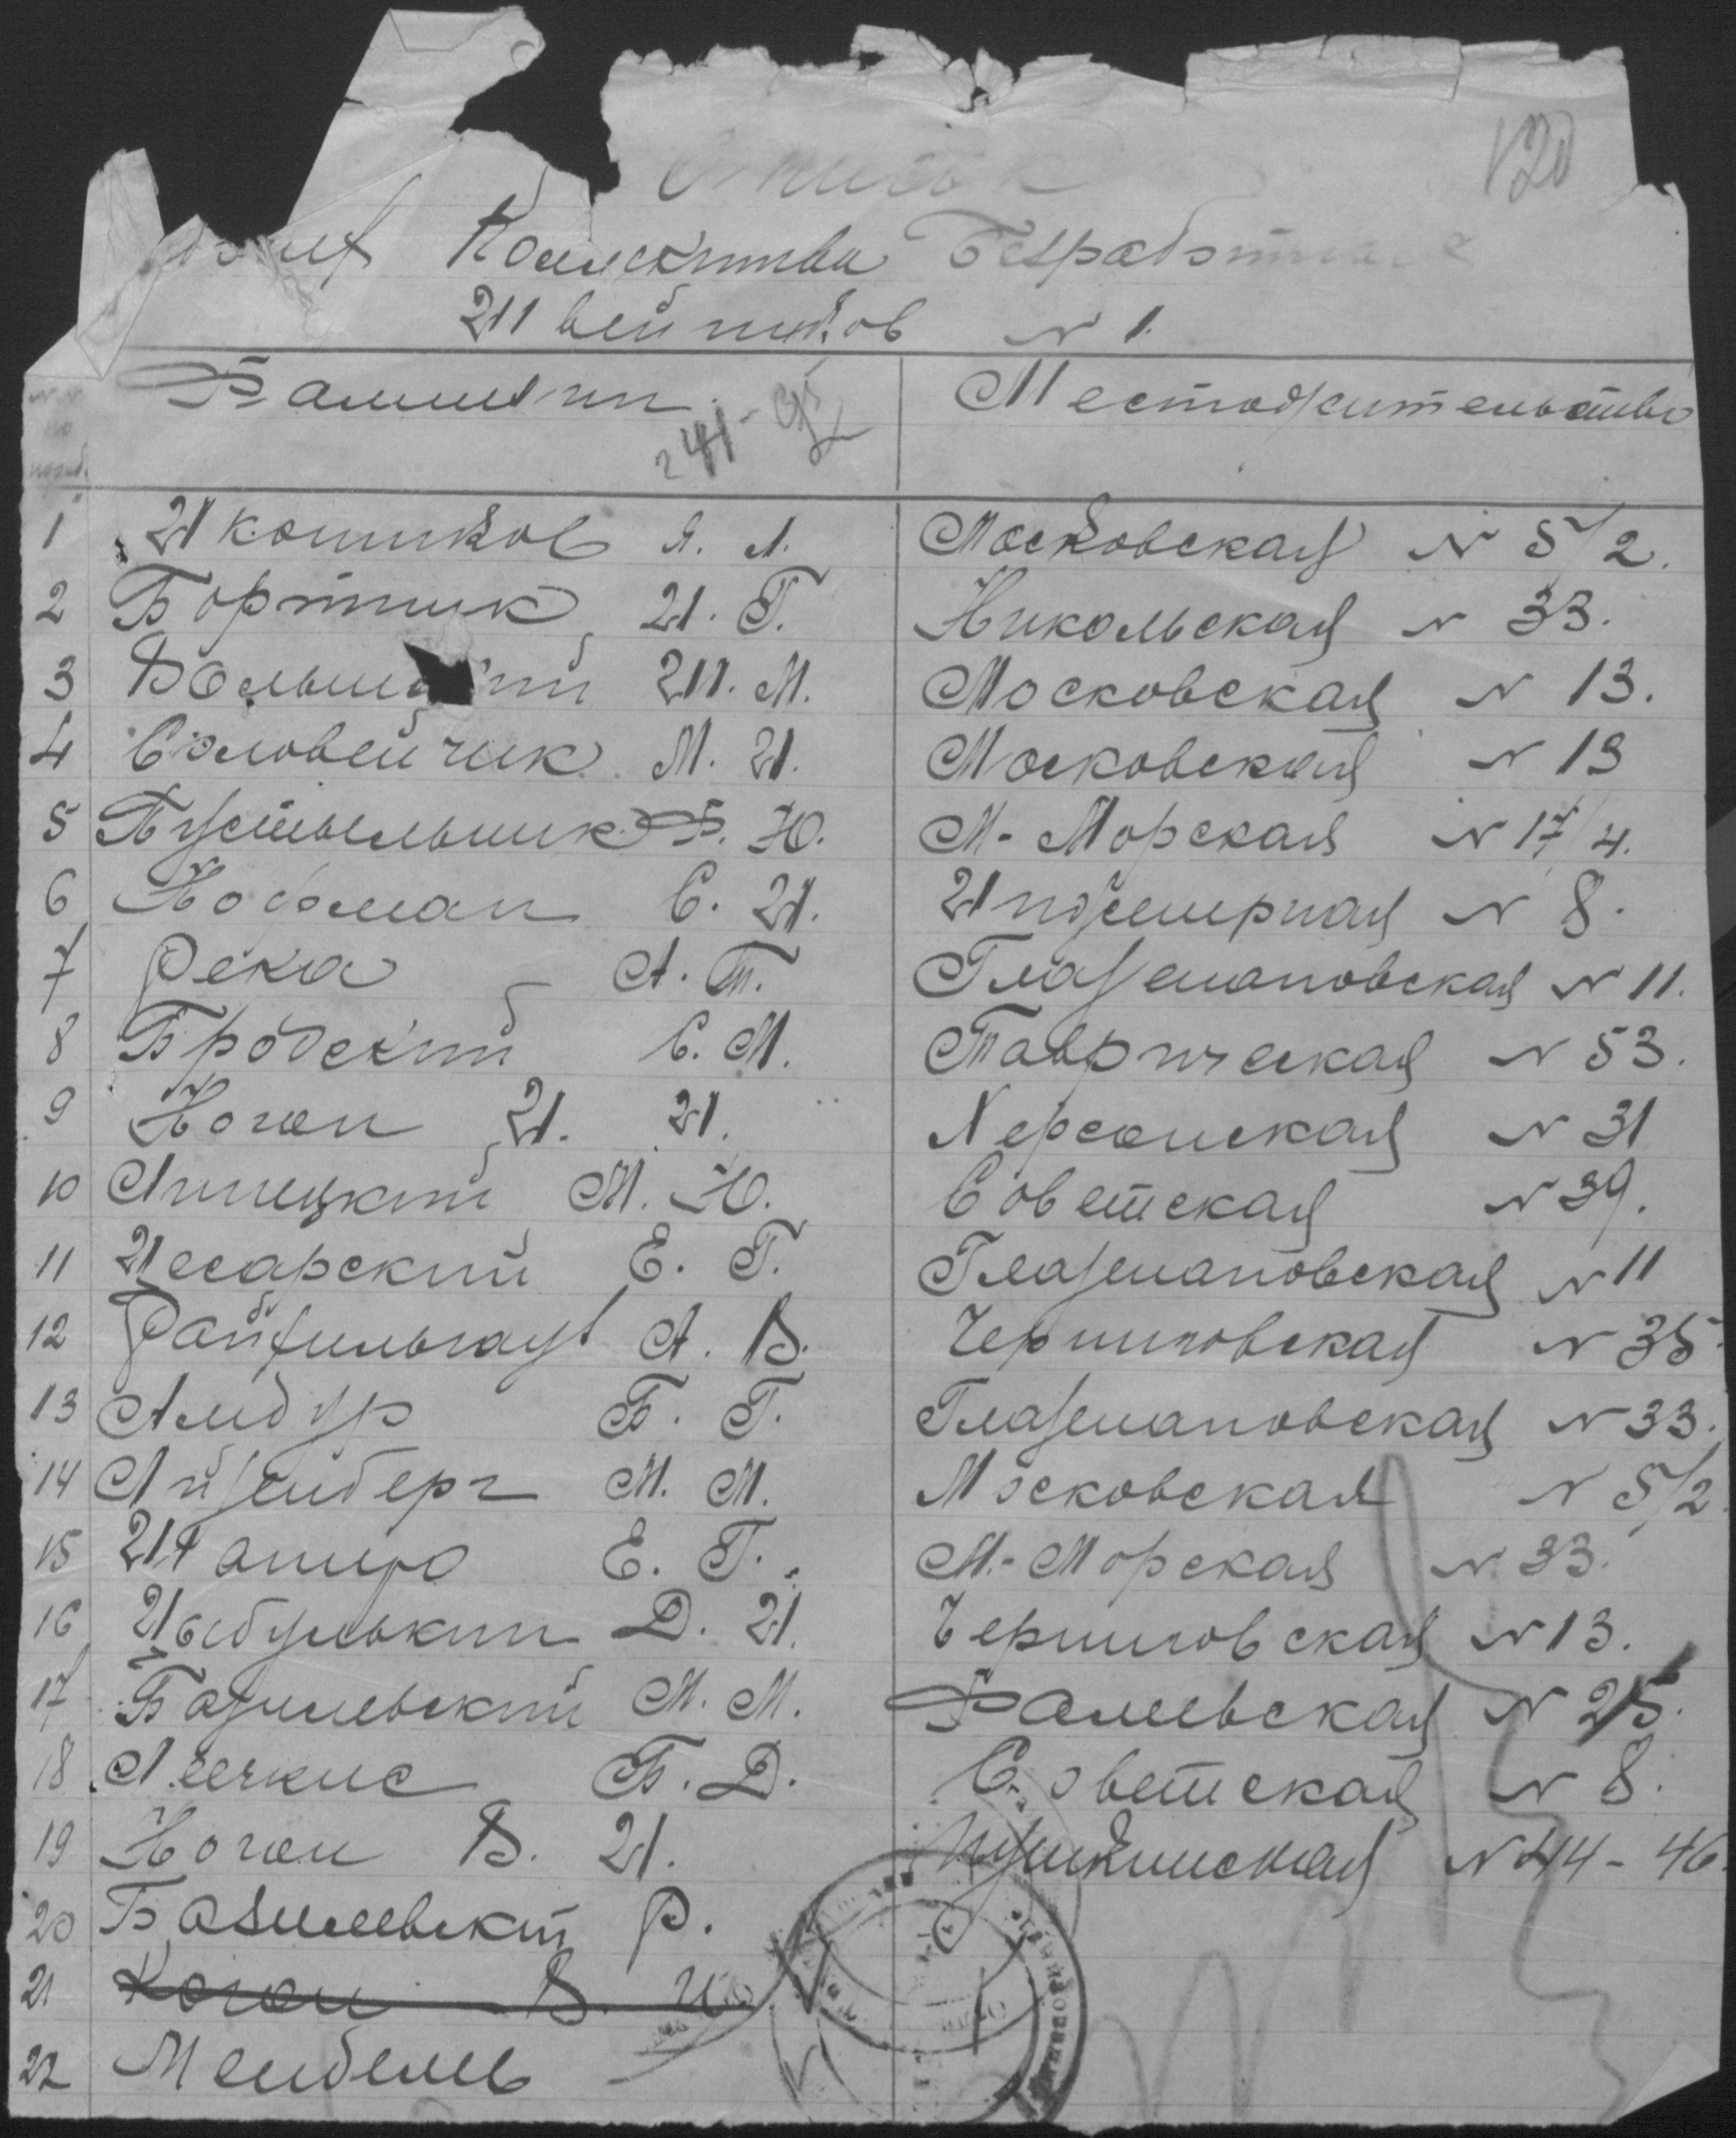 Список
120
Коллектива Безработных
Швейников № 1.
Фамилии. Местожительство
1 Иконников Я. Л. Московская № 5/2.
2 Бортник И. Г. Никольская № 33.
3 Ш. М. Московская № 13.
4 Соловейчик М. И. Московская № 13
5 Пустыльник Ф. Ю. М-Морская № 17/4.
6 Кофман С. И. Инженерная № 8.
7 Река А. Т. Глазенаповская № 11.
8 Бродский С. М. Таврическая № 53.
9 Коган И. И. Херсонская № 31
10 Липецкий М. Ю. Советская № 39.
11 Цесарский Е. Г. Глазенаповская № 11
12 Райхильгауз А. В. Черниговская № 35
13 Амдур Б. Г. Глазенаповская № 33.
14 Айзенберг М. М. Московская № 5/2
15 Шапиро Е. Г. М.-Морская № 33.
16 Цыбулькин Д. И. Черниговская № 13.
17 Базилевский М. М. Фалеевская № 25.
18 Лечкис Б. Д. Советская № 8.
19 Коган В. И. Пушкинская № 44-46
20 Базилевский Р.
21 Коган В. И.
22 Мендель